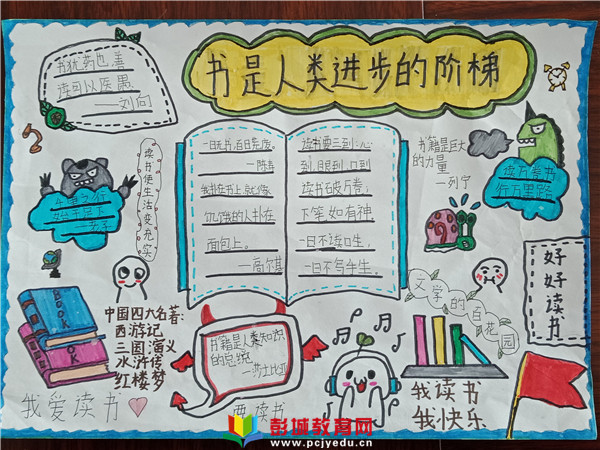 书是人类进步的阶梯
书犹药也，善
读可以医愚
——刘向
读书使生活变充实
千里之行
始于足下
——老子
一日无书，百日荒废。
——陈寿
我扑在书上，就像
饥饿的人扑在
面包上。
——高尔基
读书要三到：心
到，眼到，口到
读书破万卷，
下笔如有神
一日不读口生，
一日不写手生。
书籍是巨大
的力量
——列宁
读万卷书
行万里路
好好读书
文学的百花园
BOOK
BOOK
中国四大名著：
西游记
三国演义
水浒传
红楼梦
我爱读书
书籍是人类知识
的总统
——莎士比亚
要读书
我读书
我快乐
彭城教育网
www.pcjyedu.cn